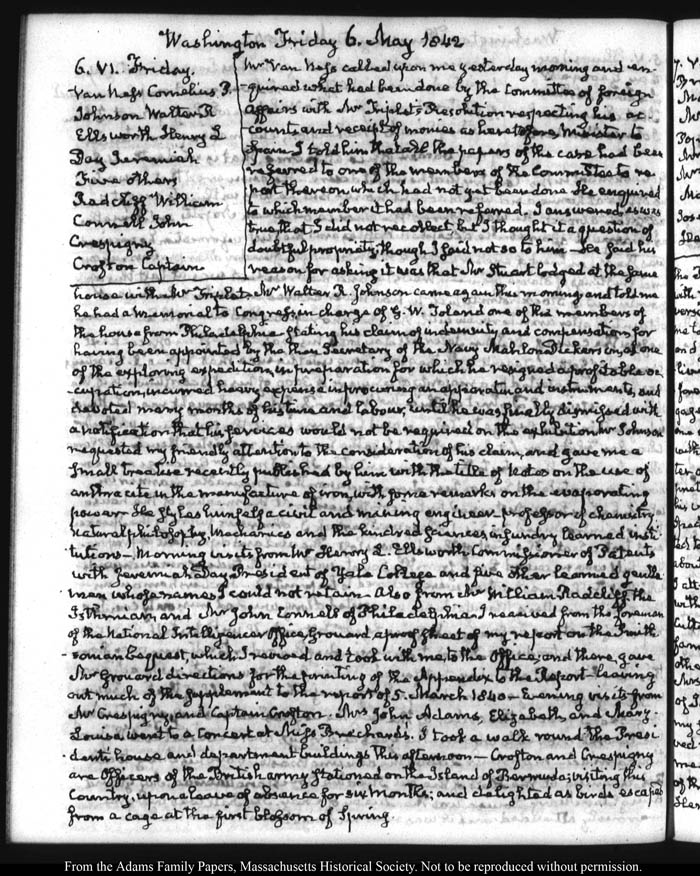 Washington Friday 6. May 1842
6. VI. Friday.
Van Ness Cornelius P.
Johnson Walter R
Ellsworth Henry L
Day Jeremiah
Five others
Radcliff William
Connell John
Crespigny
Crofton Captain
Mr Van Ness called upon me yesterday morning and en-
quired what had been done by the Committee of foreign
Affairs with Mr Triplet's Resolution respecting his ac-
counts and receipt of monies as heretofore Minister to
Spain. I told him that all the papers of the case had been
referred to one of the members of the Committee to re-
port thereon which had not yet been done. He enquired
to which member it had been referred. I answered, as was
true, that I did not recollect but I thought it a question of
doubtful propriety, though I said not so to him. He said his
reason for asking it was that Mr Stuart lodged at the same
house with Mr Triplet. Mr Walter R. Johnson came again this morning and told me
he had a Memorial to Congress, in charge of G. W. Toland one of the members of
the house from Philadelphia stating his claim of indemnity and compensation for
having been appointed by the then Secretary of the Navy Mahlon Dickerson, as one
of the exploring expedition, in preparation for which he resigned a profitable oc-
-cupation, incurred heavy expense in procuring an apparatus and instruments, and
devoted many months of his time and labour, until he was finally dismissed with
a notification that his services would not be required on the exhibition Mr Johnson
requested my friendly attention to the consideration of his claim, and gave me a
small treatise recently published by him with the title of Notes on the use of
anthracite in the manufacture of iron, with some remarks on the evaporating
power— He styles himself a civil and mining engineer—professor of chemistry
natural philosophy, Mechanics and the kindred sciences in sundry learned insti-
tutions— Morning visits from Mr Henry L. Ellsworth Commissioner of Patents
with Jeremiah Day, President of Yale College and five other learned gentle-
men whose names I could not retain— Also from Mr William Radcliff, the
Isthmian, and Mr John Connell of Philadelphia. I received from the foreman
of the National Intelligencer Office, Grouard, a proof sheet of my report on the Smith-
-sonian bequest, which I revised and took with me, to the Office; and there, gave
Mr Grouard directions for the printing of the Appendix to the Report—leaving
out much of the supplement to the report of 5. March 1840— Evening visits from
Mr Crespigny, and Captain Crofton. Mrs John Adams, Elizabeth, and Mary-
Louisa went to a Concert at Miss Breschard's. I took a walk round the Presi-
dent's house and department buildings this afternoon— Crofton and Crespigny
are Officers of the British army stationed on the Island of Bermuda; visiting this
Country, upon a leave of absence for six months; and delighted as birds escaped
from a cage at the first blossom of Spring.
From the Adams Family Papers, Massachusetts Historical Society. Not to be reproduced without permission.